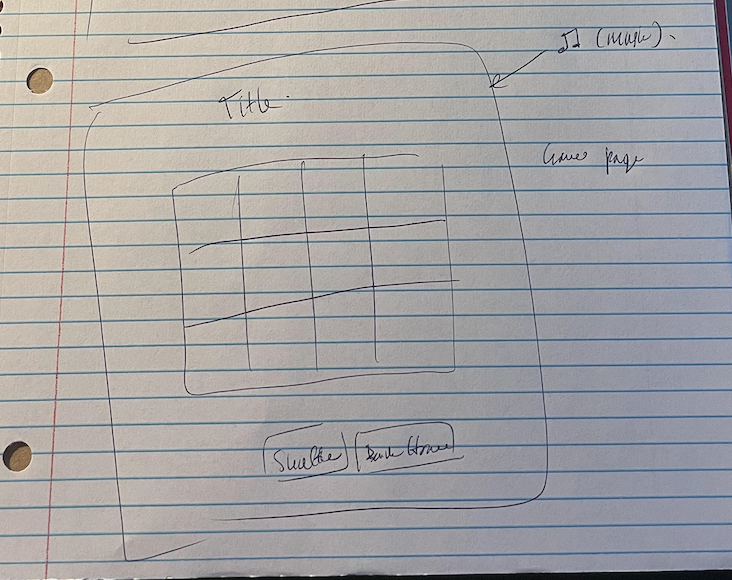 ♫ (music).
Title.
Game page
Shuffle
Back Home